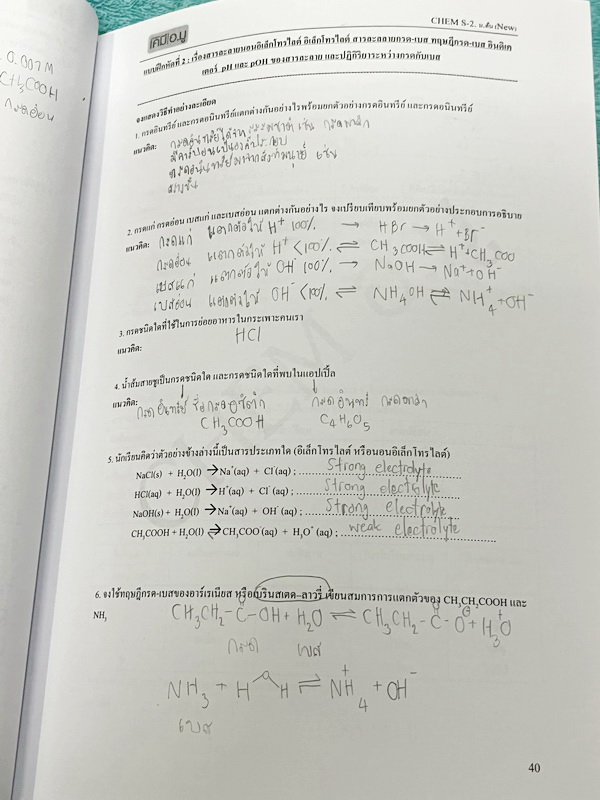 CHEM S-2. ม.ต้น (New)
เคมี อ.มู
แบบฝึกหัดที่ 2 : เรื่องสารละลายนอนอิเล็กโทรไลต์ อิเล็กโทรไลต์ สารละลายกรด-เบส ทฤษฎีกรด-เบส อินดิเค
เตอร์ pH และ pOH ของสารละลาย และปฏิกิริยาระหว่างกรดกับเบส
0.007 M
CH3COOH
กรดอ่อน
จงแสดงวิธีทำอย่างละเอียด
1. กรดอินทรีย์ และกรดอนินทรีย์แตกต่างกันอย่างไรพร้อมยกตัวอย่างกรดอินทรีย์ และกรดอนินทรีย์
แนวคิด: กรดอินทรีย์ได้จาก
มีคาร์บอนเป็นองค์ประกอบ
2. กรดแก่ กรดอ่อน เบสแก่ และเบสอ่อน แตกต่างกันอย่างไร จงเปรียบเทียบพร้อมยกตัวอย่างประกอบการอธิบาย
แนวคิด: กรดแก่ แตกตัวให้ H⁺ 100% → HBr → H⁺ + Br⁻
กรดอ่อน แตกตัวให้ H⁺ < 100% ⇌ CH3COOH ⇌ H⁺ + CH3COO
เบสแก่ แตกตัวให้ OH⁻ 100% → NaOH → Na⁺ + OH⁻
เบสอ่อน แตกตัวให้ OH⁻ < 100% ⇌ NH4OH ⇌ NH4⁺ + OH⁻
3. กรดชนิดใดที่ใช้ในการย่อยอาหารในกระเพาะคนเรา
แนวคิด: HCl
4. น้ำส้มสายชูเป็นกรดชนิดใด และกรดชนิดใดที่พบในแอปเปิ้ล
แนวคิด: กรดอินทรีย์ ชื่อกรดอะซิติก กรดอินทรีย์
CH3COOH C4H6O5
5. นักเรียนคิดว่าตัวอย่างข้างล่างนี้เป็นสารประเภทใด (อิเล็กโทรไลต์ หรือนอนอิเล็กโทรไลต์)
NaCl(s) + H2O(l) → Na⁺(aq) + Cl⁻(aq) ; Strong electrolyte
HCl(aq) + H2O(l) → H⁺(aq) + Cl⁻(aq) ; Strong electrolyte
NaOH(s) + H2O(l) → Na⁺(aq) + OH⁻(aq) ; Strong electrolyte
CH3COOH + H2O(l) ⇌ CH3COO⁻(aq) + H3O⁺(aq) ; weak electrolyte
6. จงใช้ทฤษฎีกรด-เบสของอาร์เรเนียส หรือเบรินสเตด–ลาวรี่ เขียนสมการการแตกตัวของ CH3CH2COOH และ
NH3
CH3CH2-C-OH + H2O ⇌ CH3CH2-C-O⊖ + H3O⁺
กรด เบส
NH3 + H O H ⇌ NH4⁺ + OH⁻
เบส
40